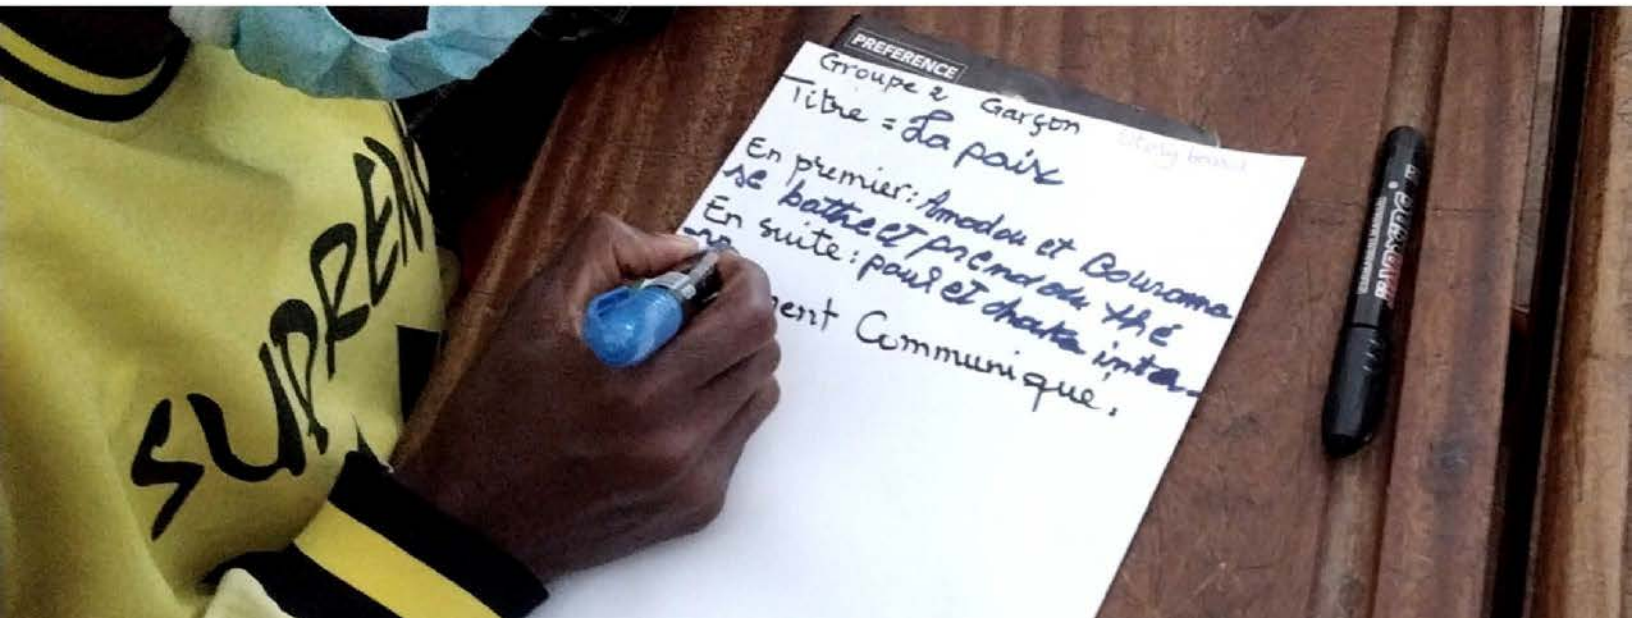 SUPREM
PREFERENCE
Groupe 2 Garçon
Titre = La paix
En premier: Amadou et Bourama
se bathe et prend du thé
En suite: paul et chaka inter-
ent Communiqué.